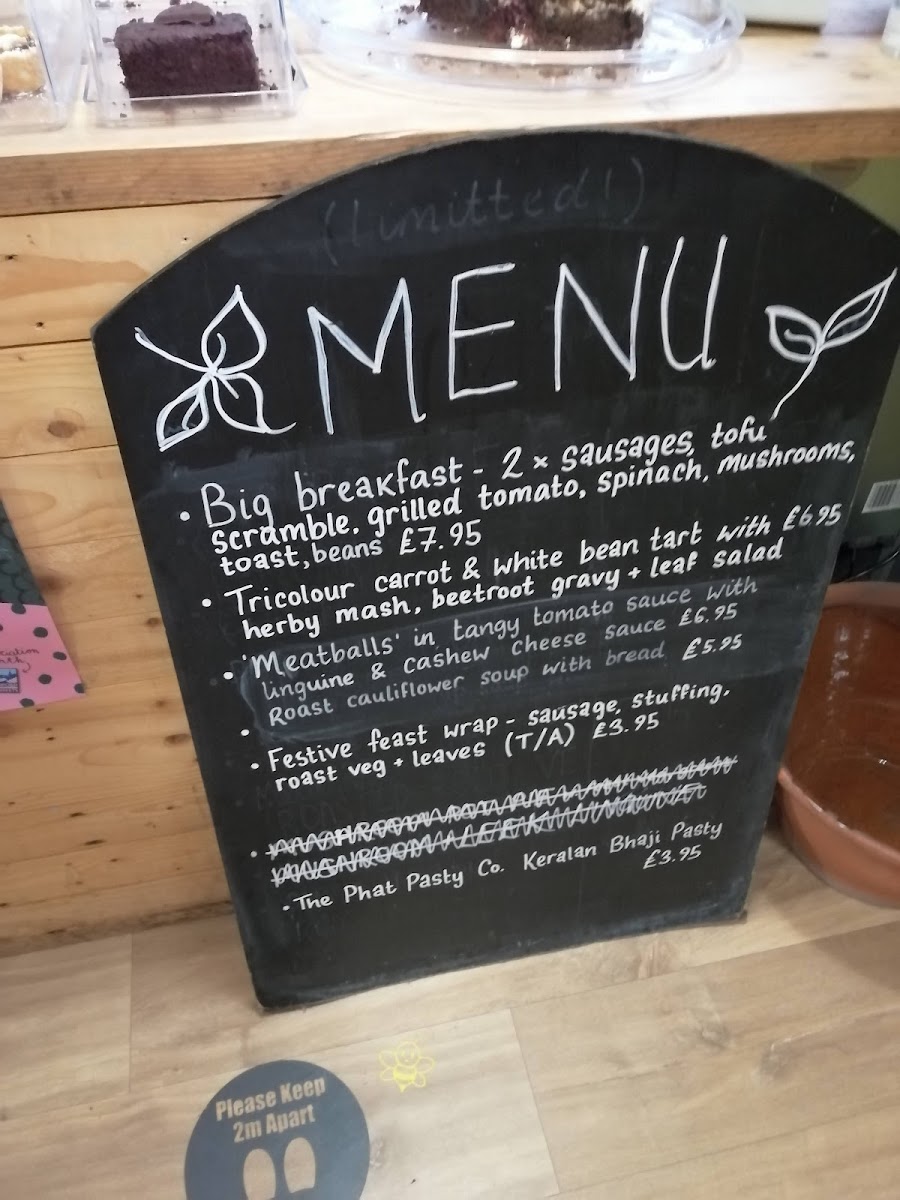 (Limitted!)
MENU
• Big breakfast - 2 x sausages, tofu
scramble, grilled tomato, spinach, mushrooms,
toast, beans £7.95
• Tricolour carrot & white bean tart with £6.95
herby mash, beetroot gravy + leaf salad
• 'Meatballs' in tangy tomato sauce with
linguine & cashew cheese sauce £6.95
• Roast cauliflower soup with bread £5.95
• Festive feast wrap - sausage, stuffing,
roast veg + leaves (T/A) £3.95
• The Phat Pasty Co. Keralan Bhaji Pasty
£3.95
Please Keep
2m Apart